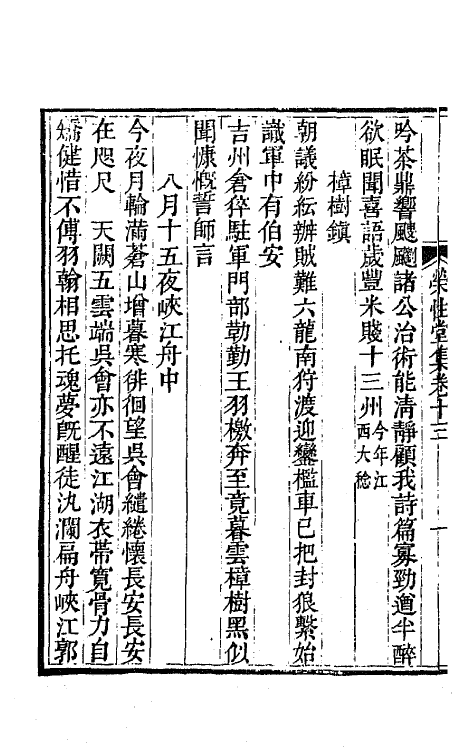 榮性堂集卷十三
一
吟茶鼎響颼飀諸公治術能清靜顧我詩篇寡勁遒半醉
欲眠聞喜語歲豐米賤十三州今年江西大稔
樟樹鎮
朝議紛紜辦賊難六龍南狩渡迎鑾檻車已把封狼繫始
識軍中有伯安
吉州倉猝駐軍門部勒勤王羽檄奔至竟暮雲樟樹黑似
聞慷慨誓師言
八月十五夜峽江舟中
今夜月輪滿蒼山增暮寒徘徊望吳會繾綣懷長安長安
在咫尺　天闕五雲端吳會亦不遠江湖衣帶寬骨力自
矯健惜不傅羽翰相思托魂夢既醒徒汍瀾扁舟峽江郭